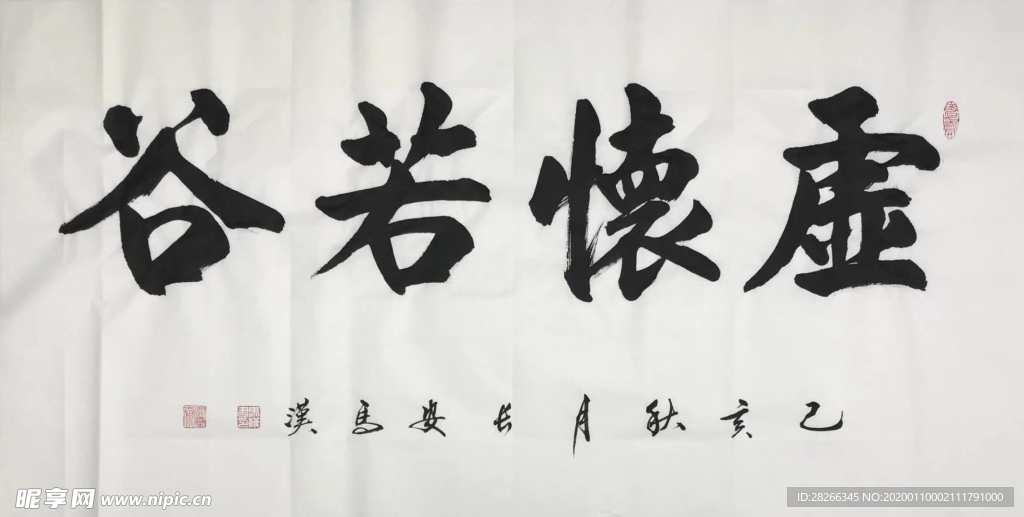 虛懷若谷
己亥秋月長安馬漢
昵享网 www.nipic.cn
ID:28266345 NO:20200110002111791000